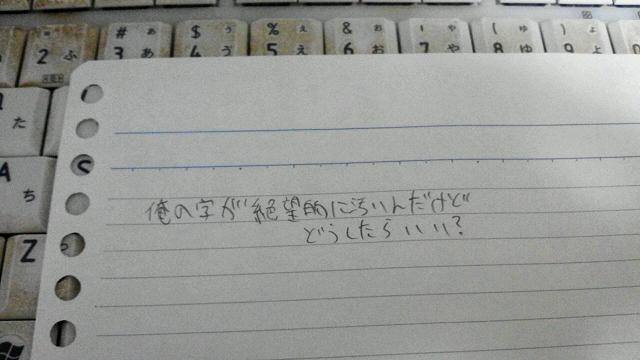 # ぁ $ ぅ % ぇ & ぉ ' ゃ ( ゅ ) ょ
2 ふ 3 あ 4 う 5 え 6 お 7 や 8 ゆ 9 よ
た
A ち
Z
俺の字が絶望的に汚いんだけど
どうしたらいい?